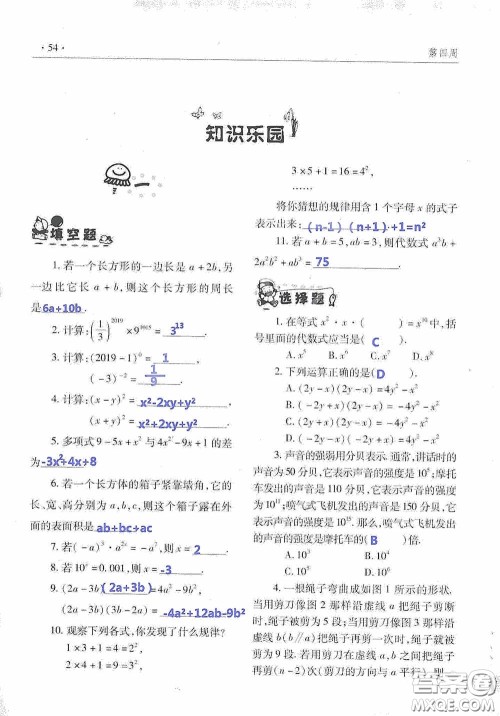 · 54 ·
第四周
知识乐园
一
填空题
1. 若一个长方形的一边长是 a + 2b,另
一边比它长 a + b,则这个长方形的周长
是 6a+10b .
2. 计算:(1/3)^2019 × 9^
= 3^13 .
3. 计算:(2019 - 1)^0 = 1 ,
(-3)^-2 = 1/9 .
4. 计算:(x - y)² = x²-2xy+y² ,
(x + y)² = x²+2xy+y² .
5. 多项式 9 - 5x + x² 与 4x² - 9x + 1 的差
为 -3x²+4x+8 .
6. 若一个长方体的箱子紧靠墙角,它的
长、宽、高分别为 a,b,c,则这个箱子露在外
面的表面积是 ab+bc+ac
7. 若(-a)³ · a²ˣ = -a⁷,则 x = 2 .
8. 若 10ˣ = 0.001,则 x = -3 .
9. (2a - 3b)( 2a+3b ) = 4a² - 9b²,
(2a - 3b)(3b - 2a) = -4a²+12ab-9b²
10. 观察下列各式,你发现了什么规律?
1 × 3 + 1 = 4 = 2²,
2 × 4 + 1 = 9 = 3²,
3 × 5 + 1 = 16 = 4²,
……
将你猜想的规律用含 1 个字母 x 的式子
表示出来: (n-1)(n+1)+1=n²
11. 若 a + b = 5,ab = 3,则代数式 a³b +
2a²b² + ab³ = 75 .
选择题
1. 在等式 x² · x · ( ) = x¹⁰ 中,括
号里面的代数式应当是( C ).
A. x⁵ B. x⁶ C. x⁷ D. x⁸
2. 下列运算正确的是( D ).
A. (2 - y + x)(2y - x) = 4y² - x²
B. (-2y + x)(2y - x) = -4y² - x²
C. (-2y + x)(2y - x) = 4y² - x²
D. (2y + x)(-2y + x) = -4y² + x²
3. 声音的强弱用分贝表示. 通常,讲话时的
声音为 50 分贝,它表示声音的强度是 10⁵;摩托
车发出的声音是 110 分贝,它表示声音的强度是
10¹¹;喷气式飞机发出的声音是 150 分贝,它表示
声音的强度是 10¹⁵. 那么,喷气式飞机发出的声
音的强度是摩托车的( B )倍.
A. 10³ B. 10⁴
C. 10⁵ D. 10⁶
4. 一根绳子弯曲成如图 1 所示的形状.
当用剪刀像图 2 那样沿虚线 a 把绳子剪断
时,绳子被剪为 5 段;当用剪刀像图 3 那样沿
虚线 b(b∥a)把绳子再剪一次时,绳子就被
剪为 9 段. 若用剪刀在虚线 a,b 之间把绳子
再剪(n - 2)次(剪刀的方向与 a 平行),则